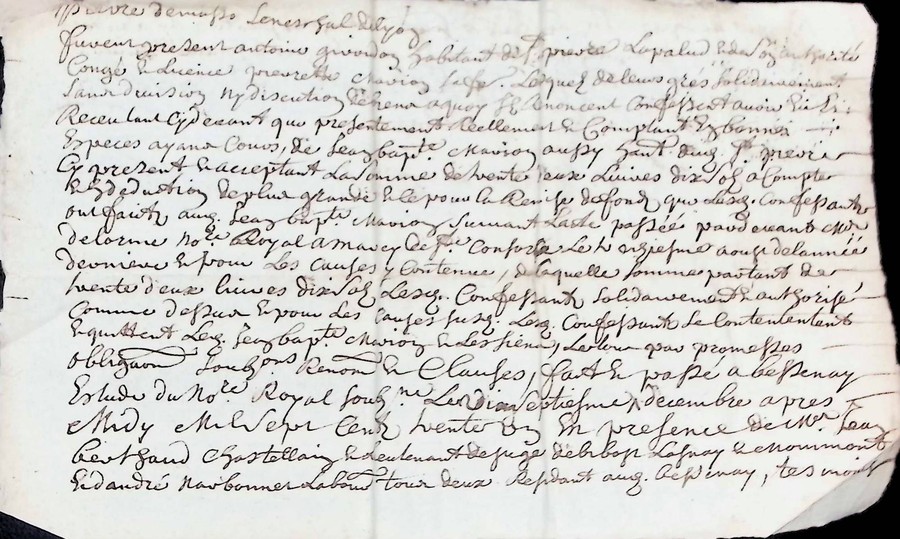 Senechal de Lyon
furent present antoine habitant de St pierre Lapalud & de Son authorité
Congé & Licence pierrette Marion sa fe. Lesquels de leurs grés Solidairement
Sans division ny discution a quoy Ils Renoncent Confessent avoir
Receu tant Cy devant que presentement Reellement & Comptant En bonnes
Especes ayant Cours, de Jean bapte Marion aussy hant dud. St pierre
Cy present & acceptant La Somme de trente deux Livres dix Sols a Compte
& En deduction de plus grande & ce pour la Remise de fond que Lesd. Confessants
ont faits aud. Jean bapte Marion Suivant Lacte passée pardevant Me
delorme Nore Royal a Le trezieme aout de Lannée
derniere & pour Les Causes y Contenue, de laquelle Somme partant de
trente deux livres dix Sols Lesd. Confessants Solidairement & authorisé
Comme dessus & pour Les Causes Susd. Lesd. Confessants Se Contentent
& quittent Led. Jean bapte Marion & Les Siens, Le tout par promesses
obligaon Soubzons Renons & Clauses, fait & passé a bessenay
Estude du Nore Royal Soubzne Le dix Septiesme decembre apres
Midy Mil Sept Cent trente En presence de Me Jean
berthaud Chastellain & Lieutenant de juge de &
& andré Narbonnet Labour tous deux Residant aud. bessenay, tesmoins